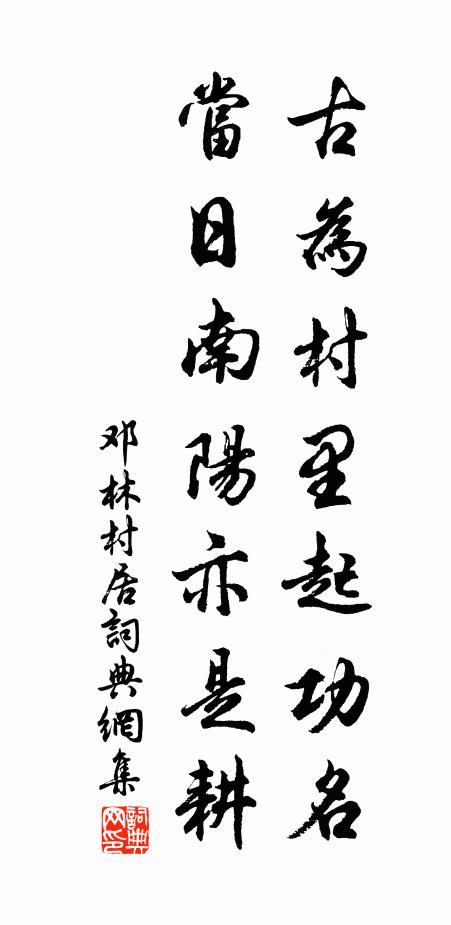 古為村里起功名
當日南陽亦是耕
邓林村居詞典網集
詞典网印